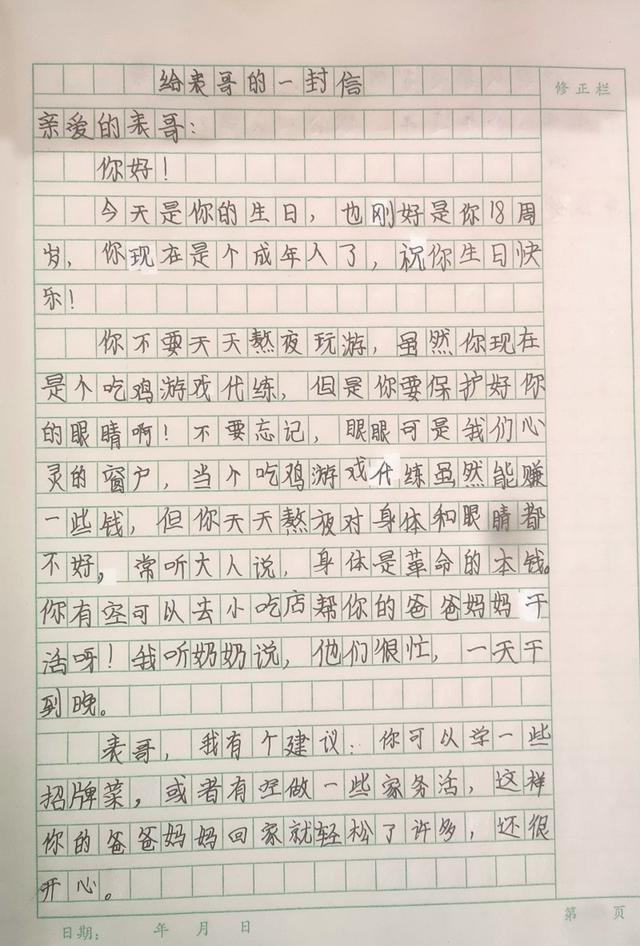 给表哥的一封信
修正栏
亲爱的表哥：
你好！
今天是你的生日，也刚好是你18周
岁，你现在是个成年人了，祝你生日快
乐！
你不要天天熬夜玩游，虽然你现在
是个吃鸡游戏代练，但是你要保护好你
的眼睛啊！不要忘记，眼眼可是我们心
灵的窗户，当个吃鸡游戏代练虽然能赚
一些钱，但你天天熬夜对身体和眼睛都
不好，常听大人说，身体是革命的本钱。
你有空可以去小吃店帮你的爸爸妈妈干
活呀！我听奶奶说，他们很忙，一天干
到晚。
表哥，我有个建议：你可以学一些
招牌菜，或者有空做一些家务活，这样
你的爸爸妈妈回家就轻松了许多，还很
开心。
日期： 年 月 日
第 页